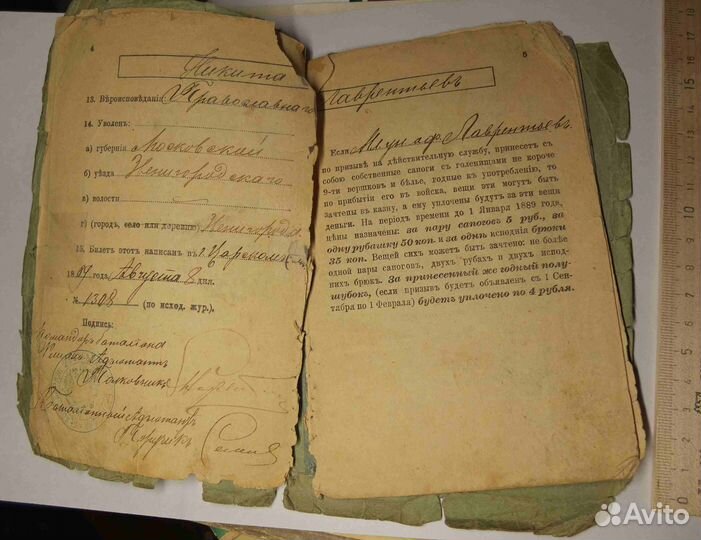 4
Никита
13. Вѣроисповѣданія Православнаго
14. Уволенъ:
а) губернія Московской
б) уѣзда Звенигородскаго
в) волости
г) (городъ, село или деревню) Звенигородъ
15. Билетъ этотъ написанъ въ г. Царскомъ
1889 годъ, Августа 8 дня.
№ 1308 (по исход. жур.).
Подпись:
Командиръ баталіона
Флигель Адъютантъ
Полковникъ
Баталіонный Адъютантъ
Поручикъ
5
Лаврентьевъ
Если Лаврентьевъ
по призыву на дѣйствительную службу, принесетъ съ
собою собственные сапоги съ голенищами не короче
9-ти вершковъ и бѣлье, годныя къ употребленію, то
по прибытіи его въ войска, вещи эти могутъ быть
зачтены въ казну, а ему уплочены будутъ за эти вещи
деньги. На періодъ времени до 1 Января 1889 года,
цѣны назначены: за пару сапоговъ 5 руб., за
одну рубашку 50 коп. и за однѣ исподнія брюки
35 коп. Вещей сихъ можетъ быть зачтено: не болѣе
одной пары сапоговъ, двухъ рубахъ и двухъ испод-
нихъ брюкъ. За принесенный же годный полу-
шубокъ, (если призывъ будетъ объявленъ съ 1 Сен-
тября по 1 Февраля) будетъ уплочено по 4 рубля.
0 1 2 3 4 5 6 7 8 9 10 11 12 13 14 15 16 17 18
Avito